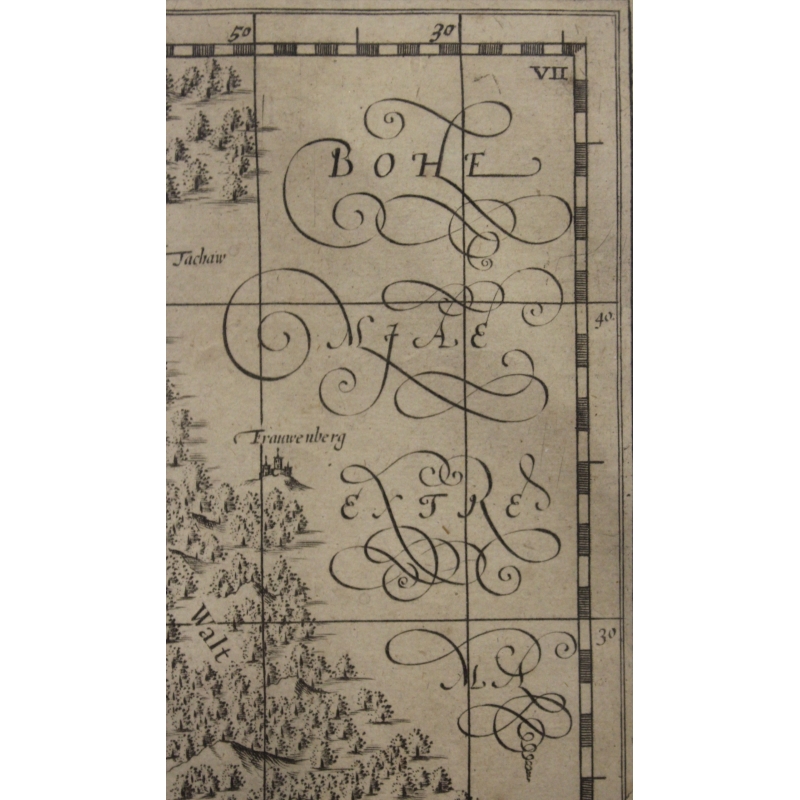 50 30
VII
BOHE
Tachaw
MIAE
40.
Frauwenberg
EXTRE
Walt
30
MA